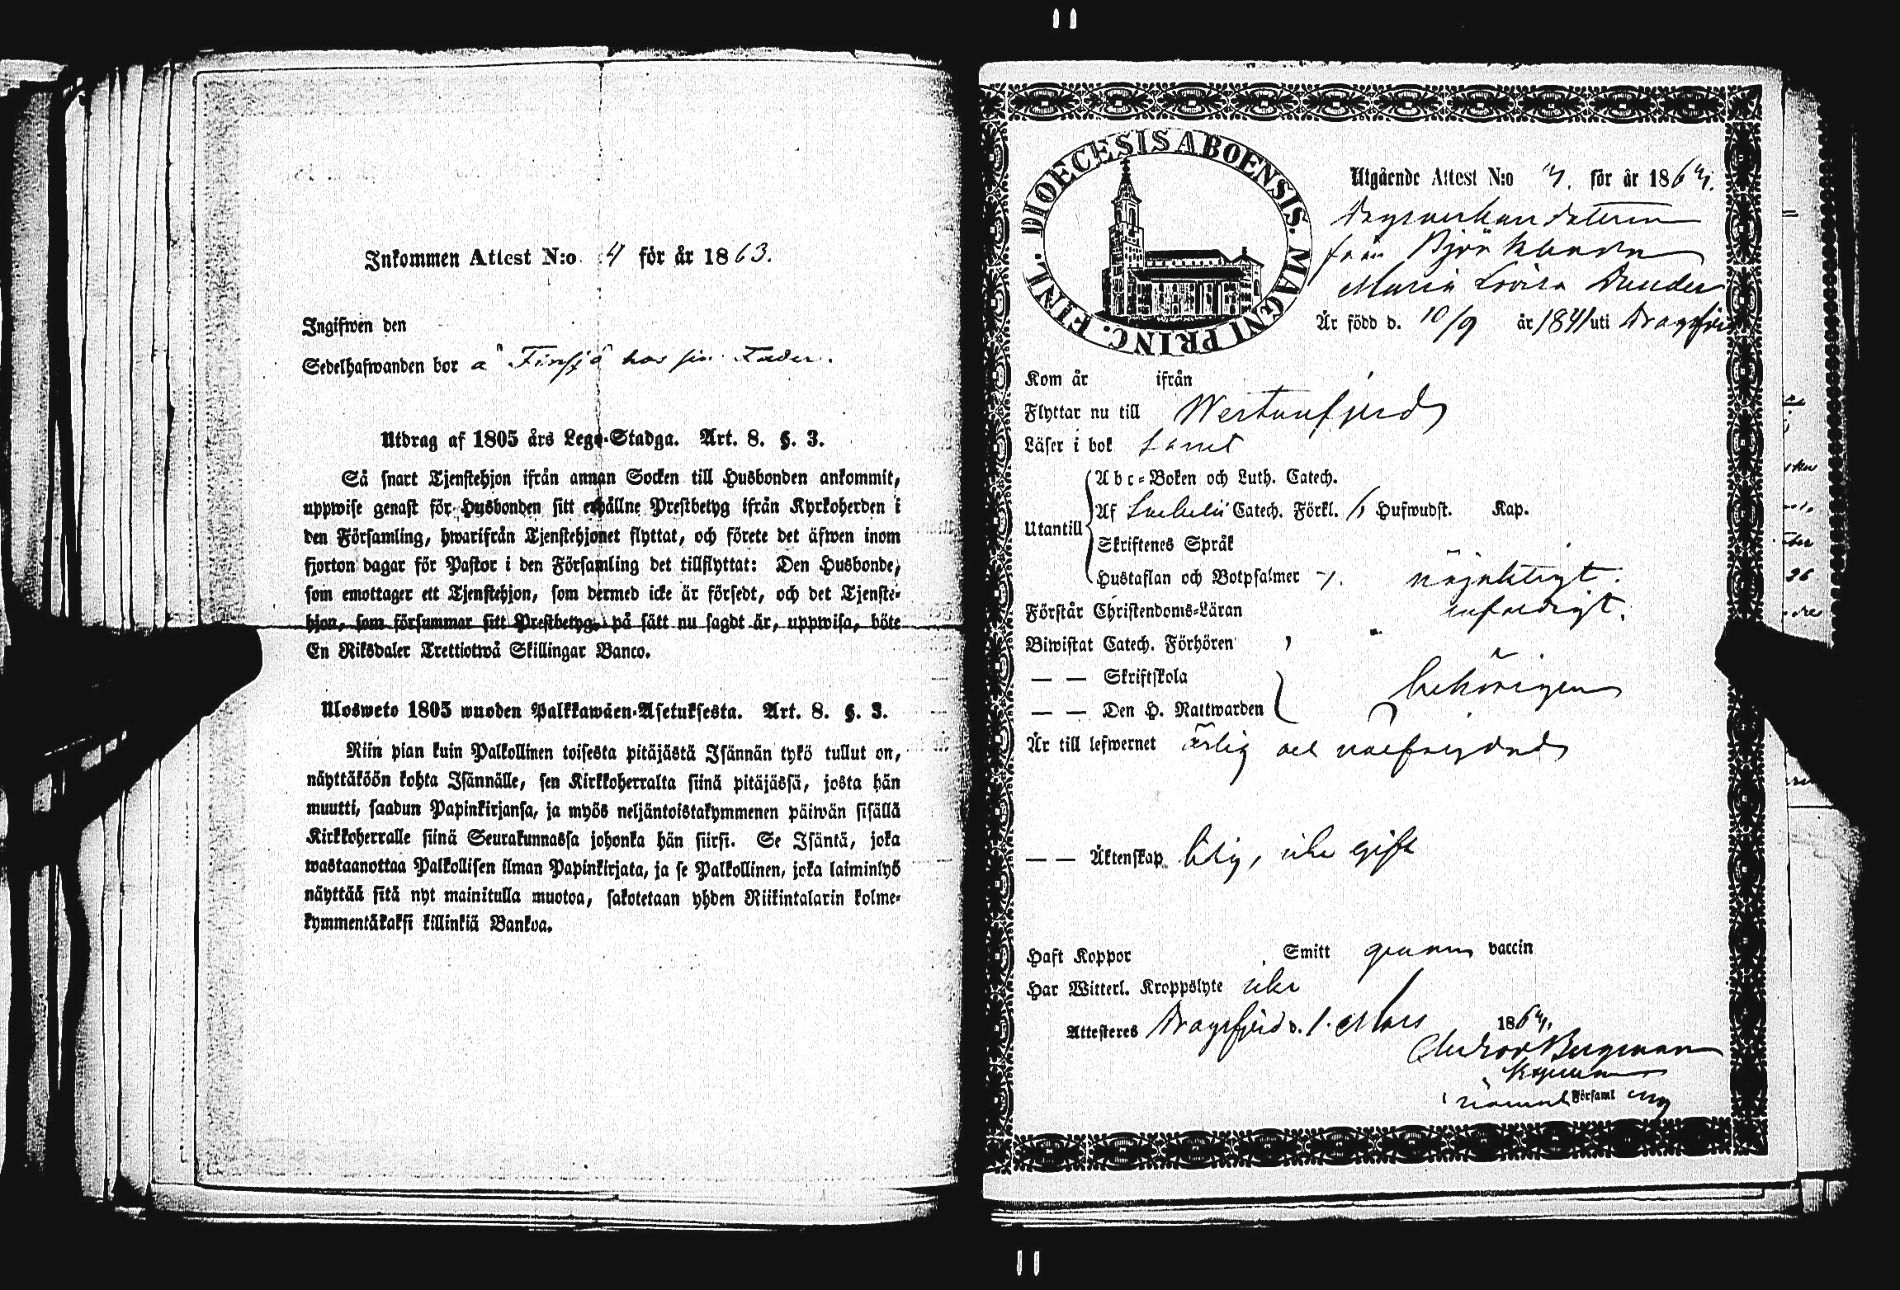 Inkommen Attest N:o 4 för år 1863.
Ingifwen den
Sedelhafwanden bor å Finsjö hos sin Fader.
Utdrag af 1805 års Lego-Stadga. Art. 8. §. 3.
Så snart Tjenstehjon ifrån annan Socken till Husbonden ankommit,
uppwise genast för Husbonden sitt erhållne Prestbetyg ifrån Kyrkoherden i
den Församling, hwarifrån Tjenstehjonet flyttat, och förete det äfwen inom
fjorton dagar för Pastor i den Församling det tillflyttat: Den Husbonde,
som emottager ett Tjenstehjon, som dermed icke är försedt, och det Tjenste-
hjon, som försummar sitt Prestbetyg, på sätt nu sagdt är, uppwisa, böte
En Riksdaler Trettiotwå Skillingar Banco.
Ulosweto 1805 wuoden Palkkawäen-Asetuksesta. Art. 8. §. 3.
Niin pian kuin Palkollinen toisesta pitäjästä Isännän tykö tullut on,
näyttäköön kohta Isännälle, sen Kirkkoherralta siinä pitäjässä, josta hän
muutti, saadun Papinkirjansa, ja myös neljäntoistakymmenen päiwän sisällä
Kirkkoherralle siinä Seurakunnassa johonka hän siirsi. Se Isäntä, joka
wastaanottaa Palkollisen ilman Papinkirjata, ja se Palkollinen, joka laiminlyö
näyttää sitä nyt mainitulla muotoa, sakotetaan yhden Riikintalarin kolme-
kymmentäkaksi killinkiä Bankoa.
DIOECESIS ABOENSIS. MAGNI PRINC. FINL.
Utgående Attest N:o för år 186
från
Maria Lovisa
Är född d. 10/9 år 1841 uti Dragsfjerd
Kom år ifrån
Flyttar nu till Westanfjerd
Läser i bok
Utantill
Abc-Boken och Luth. Catech.
Af Catech. Förkl. Hufwudst. Kap.
Skriftenes Språk
Hustaflan och Botpsalmer nöjaktigt.
Förstår Christendoms-Läran
Biwistat Catech. Förhören
— — Skriftskola behörigen
— — Den H. Nattwarden
Är till lefwernet ärlig och välfrejdad
— — Äktenskap ledig, icke gift
Haft Koppor Smitt genom vaccin
Har Witterl. Kroppslyte icke
Attesteres Dragsfjerd d. 1. Mars 186
Bergman
Församl